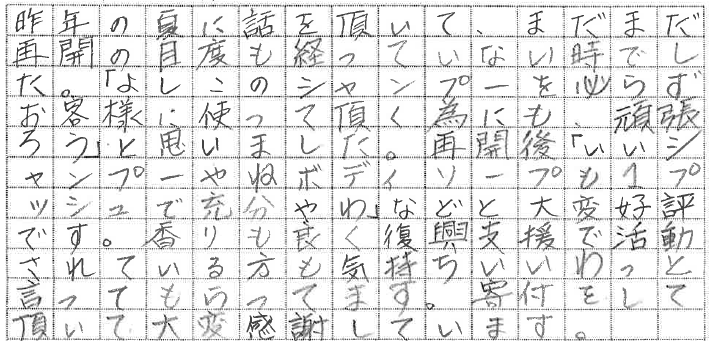 昨年の夏に話を頂いて、まだまだ
再開の目度も経っていない時でし
た。「よしこのシャンプーを必らず
お客様に使って頂く為にも、頑張
ろう」と思いました。再開後「いいシ
ャンプーやねボディソープも1プ
ッシュで充分やわ」などと大変好評
です。香りも良く復興支援で活動
されている方も気持ちいいわっと
言ってもらってます。寄付をして
頂いて大変感謝しています。